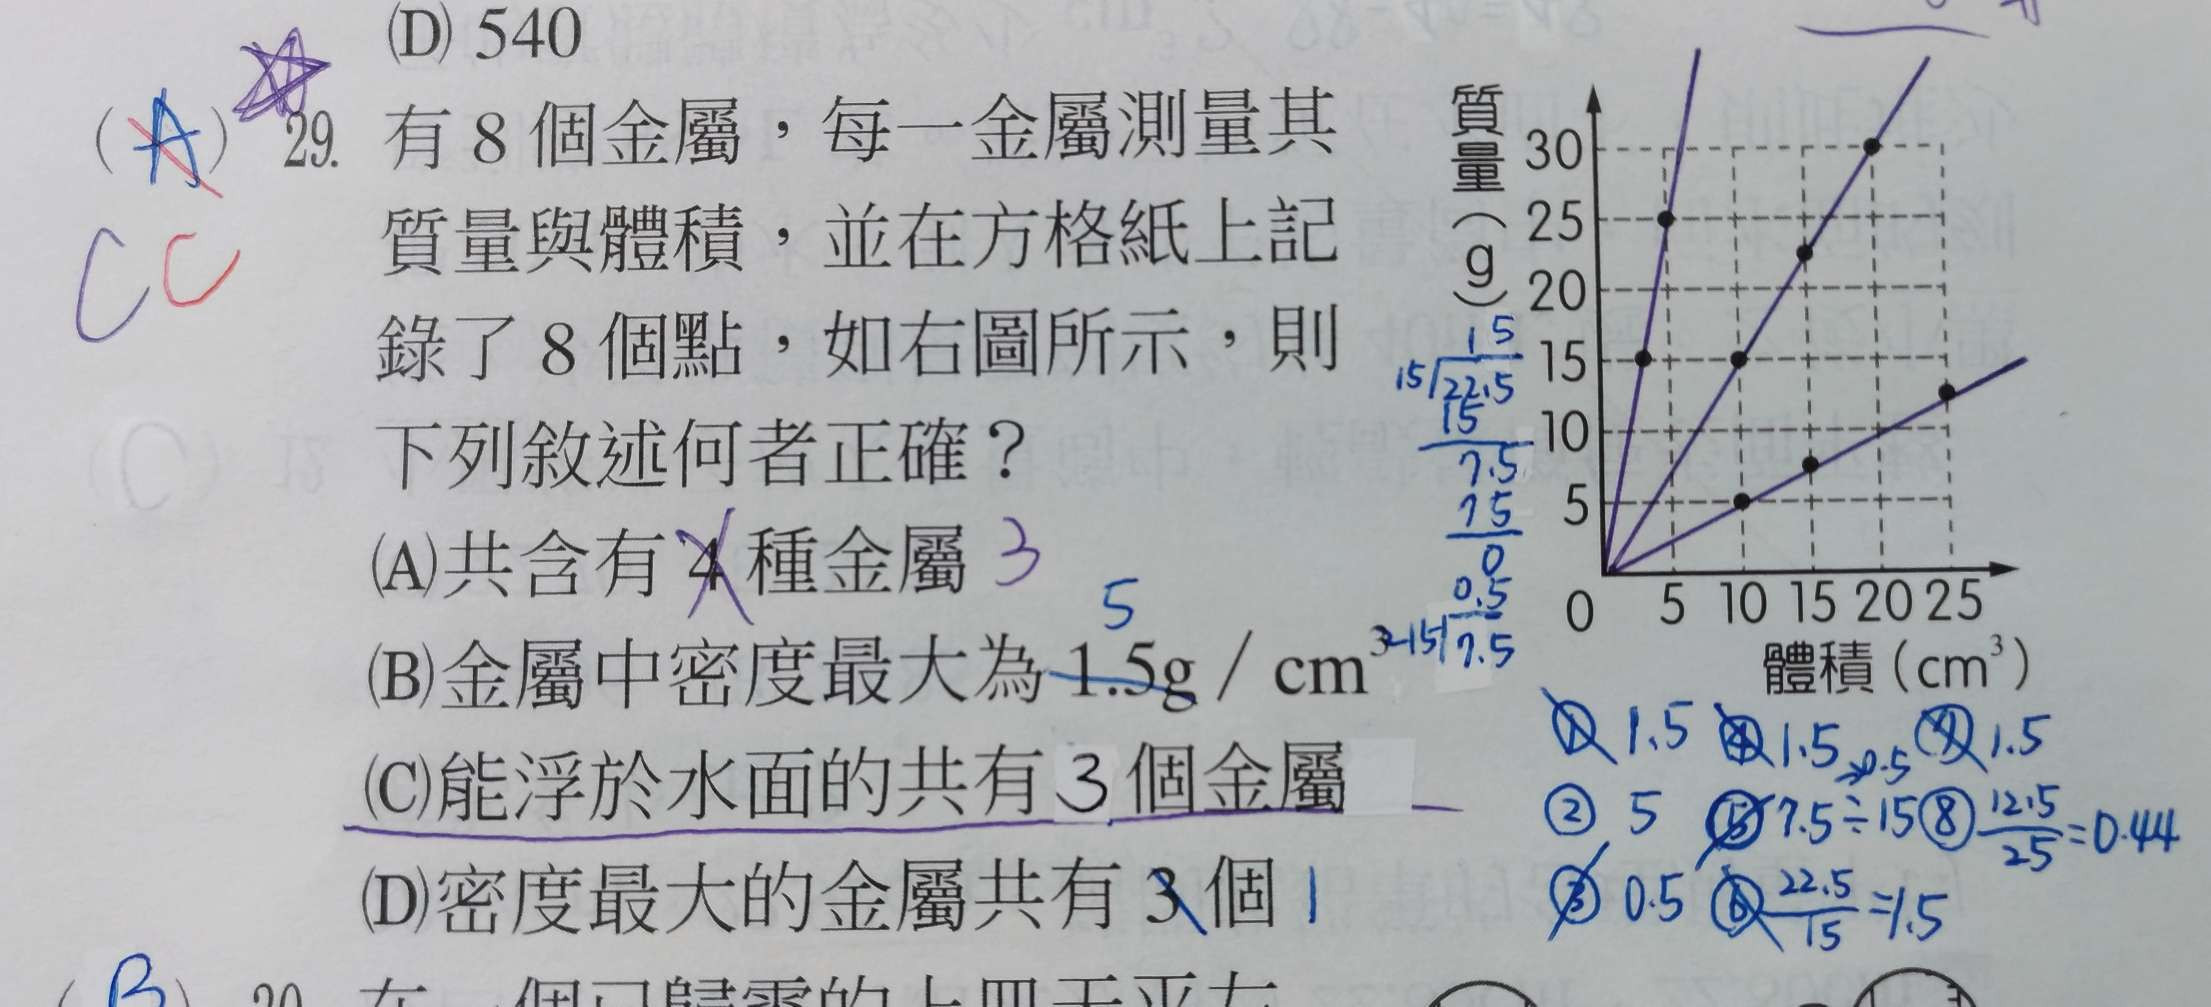 (D) 540
(A) 29. 有 8 個金屬，每一金屬測量其
C C
質量與體積，並在方格紙上記
錄了 8 個點，如右圖所示，則
下列敘述何者正確？
(A)共含有 4 種金屬 3
5
(B)金屬中密度最大為 1.5g / cm³
(C)能浮於水面的共有 3 個金屬
(D)密度最大的金屬共有 3 個 1
質量(g)
30
25
20
15
10
5
0 5 10 15 20 25
體積(cm³)
1 5
15 22.5
15
7.5
7 5
0
0.5
15 7.5
① 1.5 ④ 1.5 ⑦ 1.5
0.5
② 5 ⑤ 7.5÷15 ⑧ 12.5/25=0.44
③ 0.5 ⑥ 22.5/15=1.5
(B) 30.